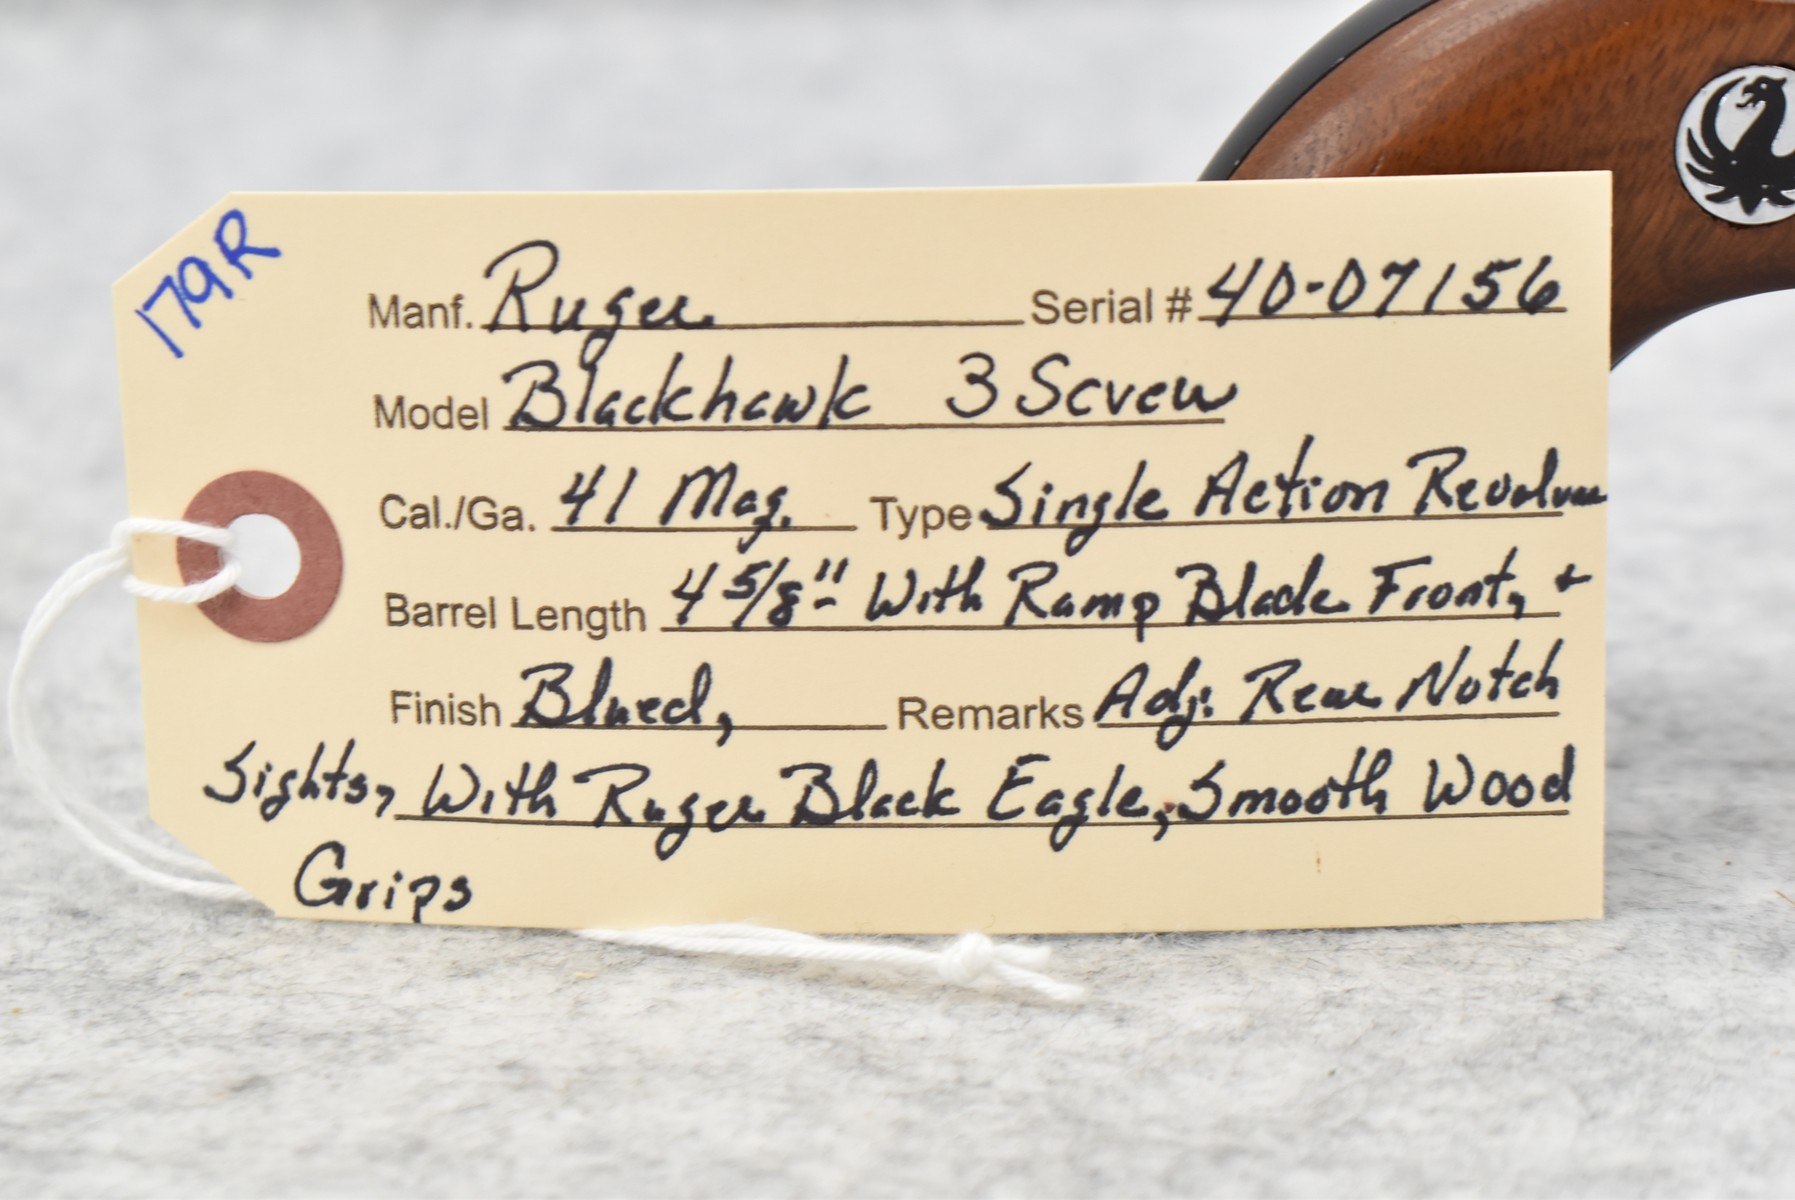 179R
Manf. Ruger Serial # 40-07156
Model Blackhawk 3 Screw
Cal./Ga. 41 Mag. Type Single Action Revolver
Barrel Length 4 5/8" With Ramp Blade Front, +
Finish Blued, Remarks Adj. Rear Notch
Sights, With Ruger Black Eagle, Smooth Wood
Grips